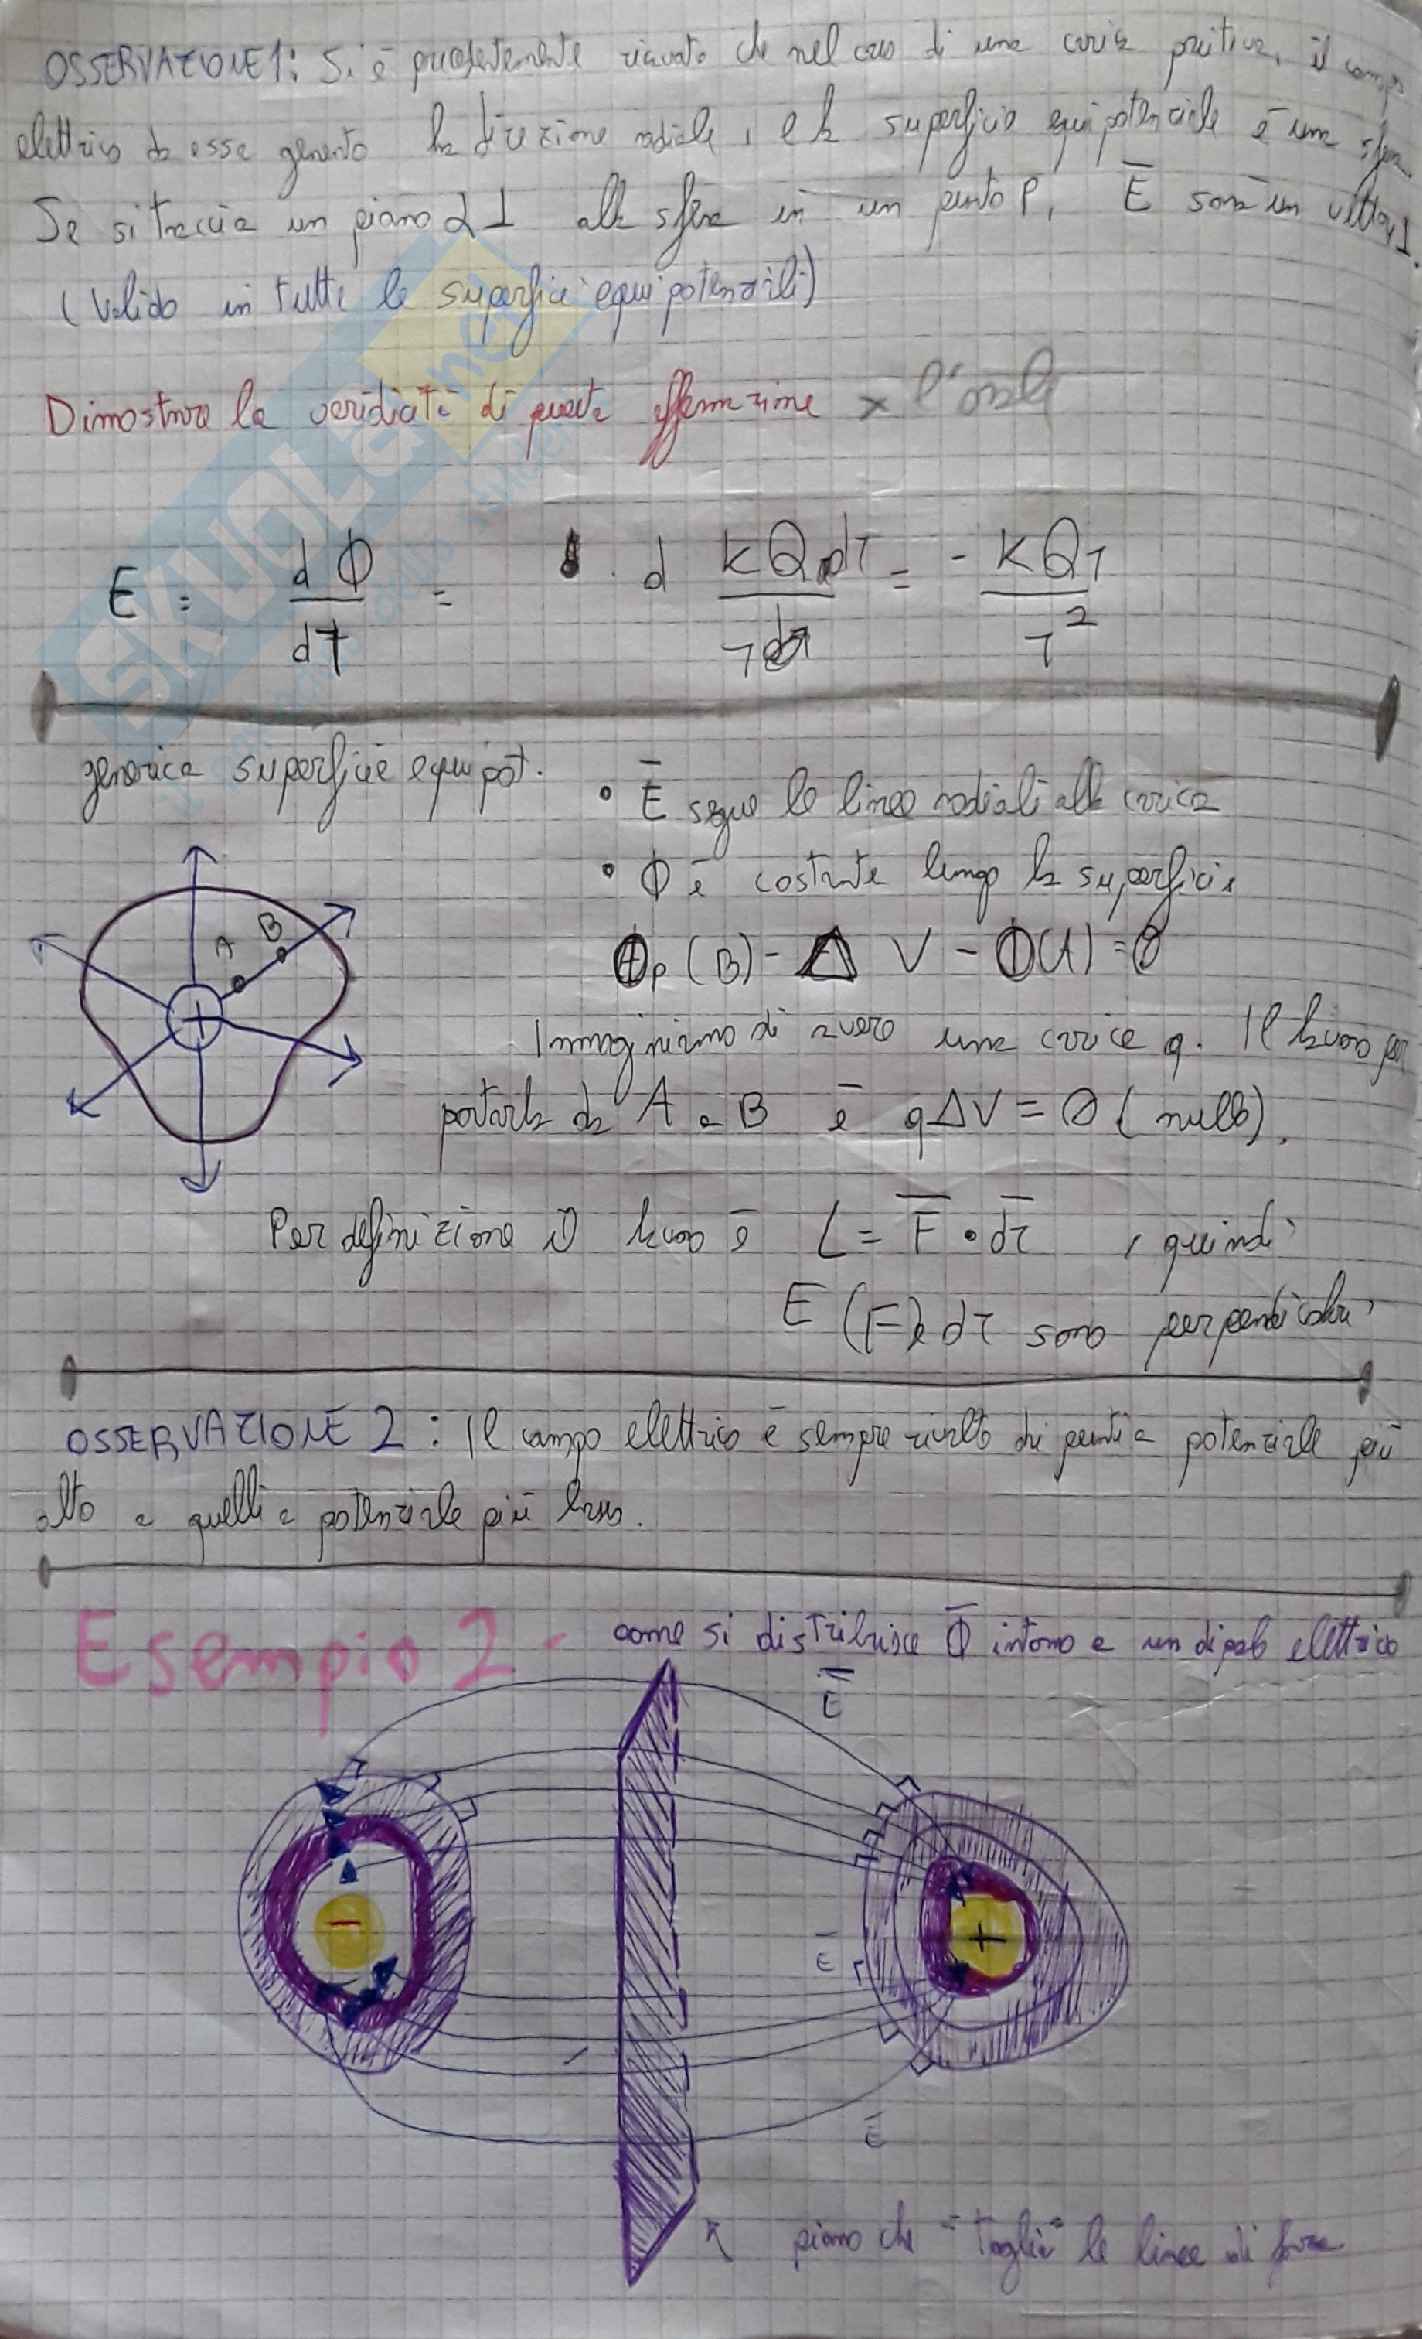 OSSERVAZIONE 1: Si è precedentemente ricavato che nel caso di una carica positiva, il campo
elettrico da essa generato ha direzione radiale, e la superficie equipotenziale è una sfera
Se si traccia un piano α ⊥ alla sfera in un punto P, E̅ sarà un vettore ⊥.
(Valido in tutte le superfici equipotenziali)
Dimostrare la veridicità di questa affermazione x l'orale
E = dΦ/dr = d kQ dr / r dr = - kQr / r²
generica superficie equipot.
• E̅ segue le linee radiali alla carica
• Φ è costante lungo la superficie
A B
+
Φp (B) - Δ V - Φ(A) = 0
Immaginiamo di avere una carica q. Il lavoro per
portarla da A a B è qΔV = 0 (nullo).
Per definizione il lavoro è L = F̅ • dr̅ , quindi
E (F) e dr sono perpendicolari
OSSERVAZIONE 2: Il campo elettrico è sempre rivolto da punti a potenziale più
alto a quelli a potenziale più basso.
Esempio 2 - come si distribuisce Φ̅ intorno a un dipolo elettrico
E̅
-
+
E̅
E̅
piano che "taglia" le linee di forza
SKUOLA.net